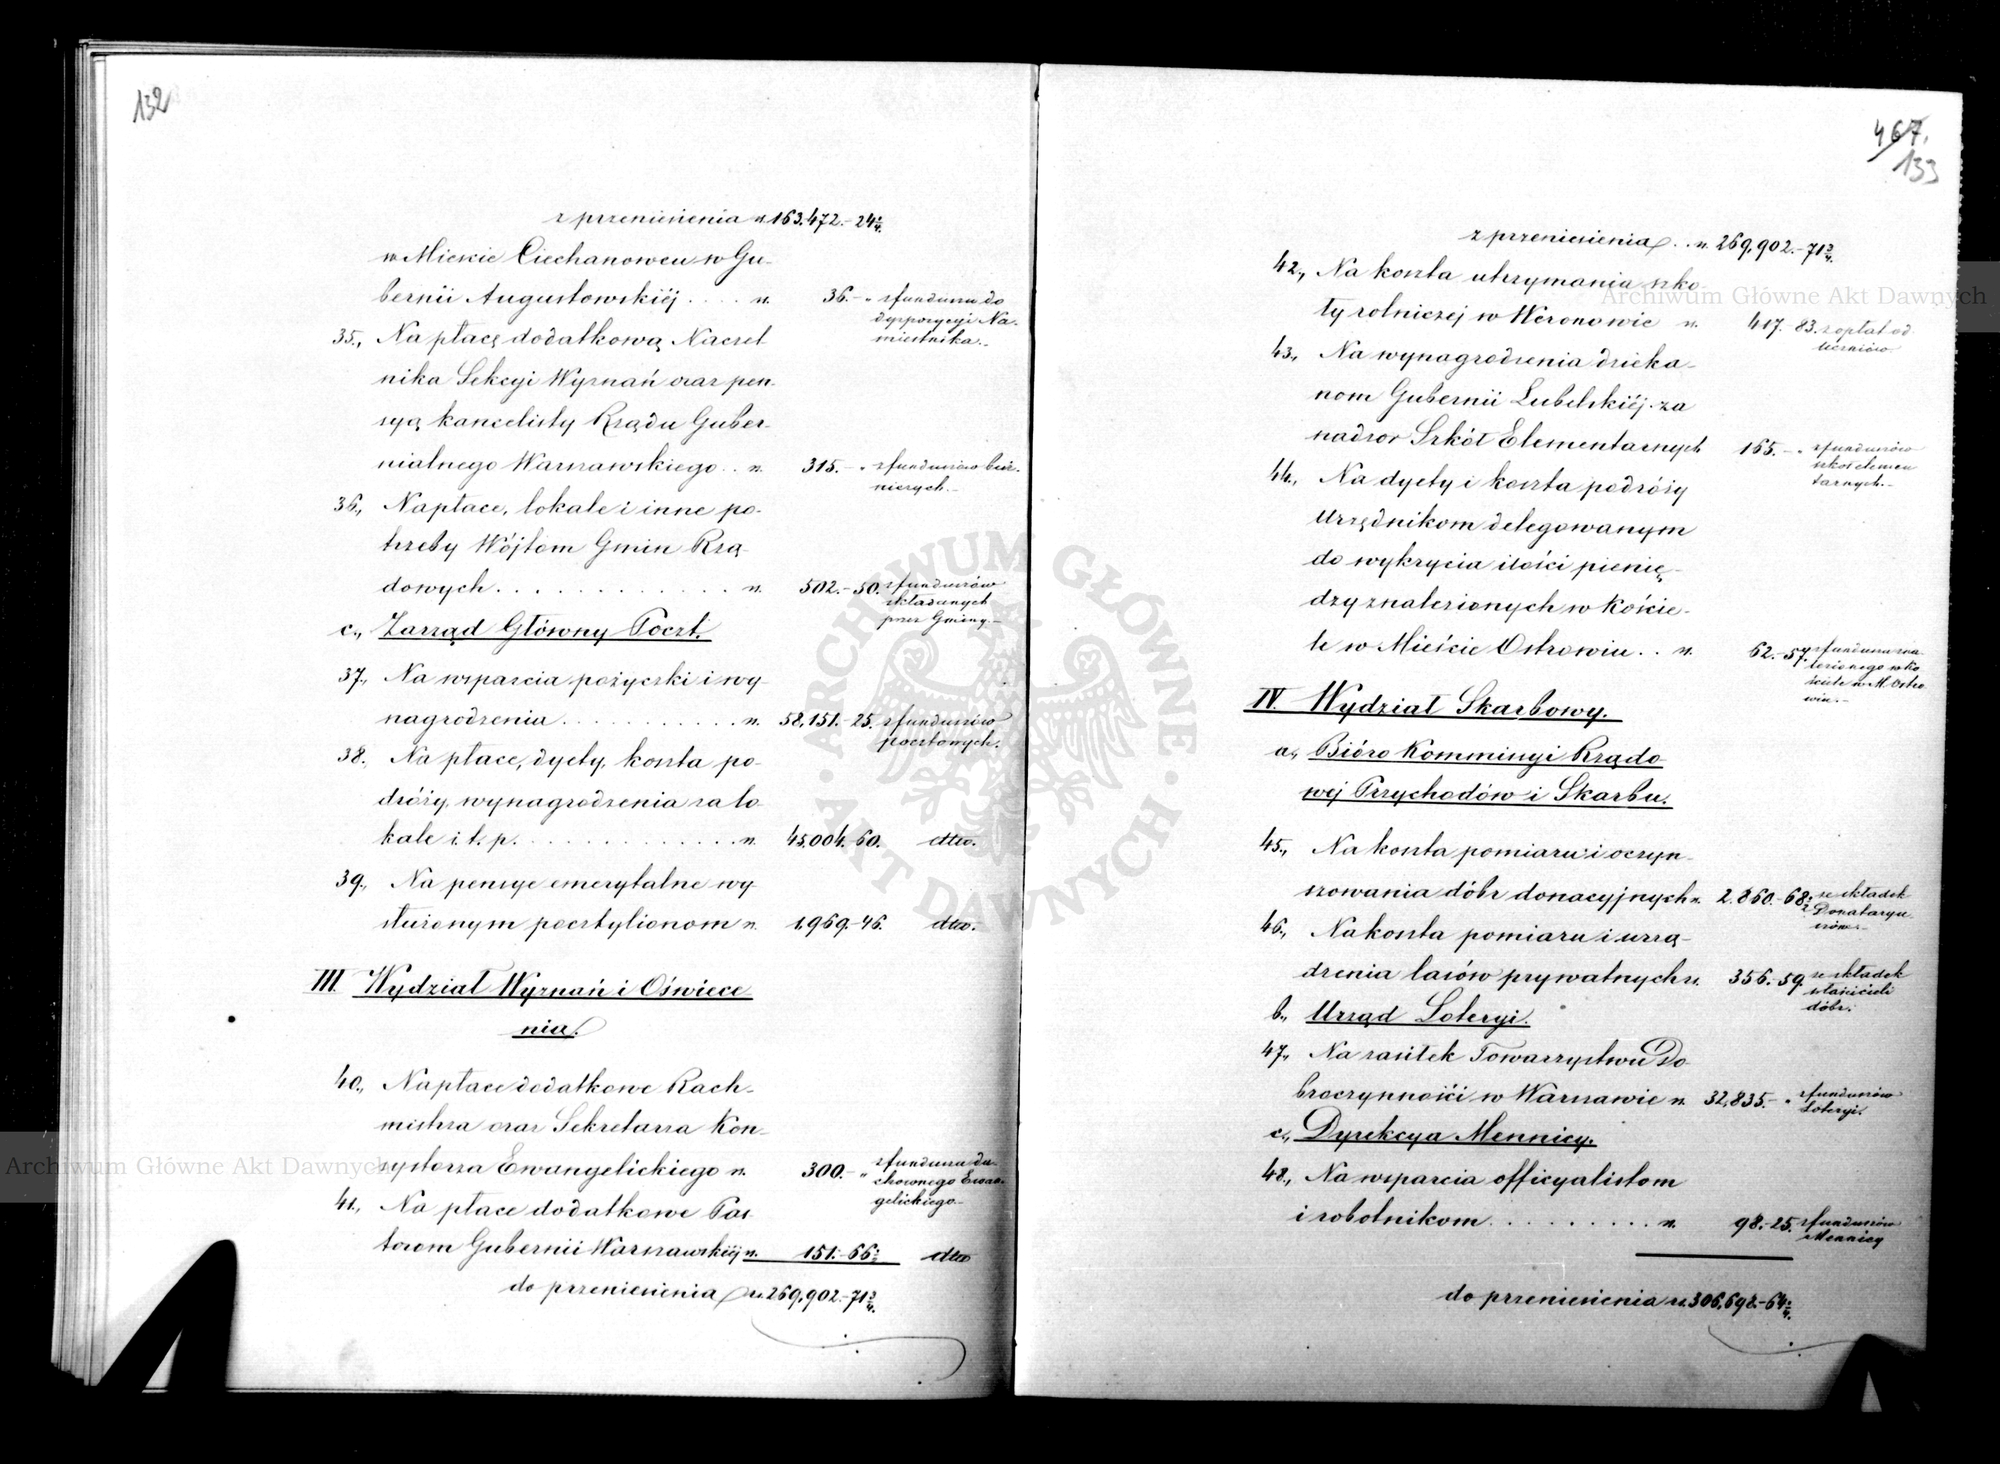 132
z przeniesienia rs 163.472.-24 2/4.
w Mieście Ciechanowcu w Gu-
bernii Augustowskiéj . . . . rs. 36.- „ z funduszu do
dyspozycyi Na-
miestnika.-
35., Na płacę dodatkową Naczel
nika Sekcyi Wyznań oraz pen-
syą kancelisty Rządu Guber-
nialnego Warszawskiego . . rs. 315.- „ z funduszów bóż-
niczych.-
36., Na płace, lokale i inne po-
trzeby Wójtom Gmin Rzą-
dowych . . . . . . . . . . . . rs. 502.-50. z funduszów
składanych
przez Gminy.-
c., Zarząd Główny Poczt.
37., Na wsparcia pożyczki i wy-
nagrodzenia . . . . . . . . . . rs. 58,151.-25. z funduszów
pocztowych.
38. Na płace, dyety, koszta po-
dróży, wynagrodzenia za lo-
kale i t. p. . . . . . . . . . . . rs. 45,004.-60. dtto.
39., Na pensye emerytalne wy-
służonym pocztylionom rs. 1,969.-46. dtto.-
III. Wydział Wyznań i Oświece
nia.
40., Na płace dodatkowe Rach-
mistrza oraz Sekretarza Kon-
systorza Ewangelickiego rs. 300.- „ z funduszu du-
chownego Ewan-
gelickiego.-
41., Na płace dodatkowe Pas-
torom Gubernii Warszawskiéj rs. 151.-66 1/2 dtto
do przeniesienia rs. 269,902.-71 3/4.
467.
133
z przeniesienia . . rs. 269,902.-71 3/4.
42., Na koszta utrzymania szko-
ły rolniczej w Weronowie rs. 417.-83. z opłat od
uczniów.
43., Na wynagrodzenia dzieka-
nom Gubernii Lubelskiéj za
nadzor Szkół Elementarnych 165.- „ z funduszów
szkoł elemen
tarnych.-
44., Na dyety i koszta podróży
Urzędnikom delegowanym
do wykrycia ilości pienię-
dzy znalezionych w koście-
le w Mieście Ostrowiu . . rs. 62.-57. z funduszu zna-
lezionego w ko
ściele w M. Ostro
wiu.-
IV. Wydział Skarbowy.
a., Bióro Kommissyi Rządo
wej Przychodów i Skarbu.
45., Na koszta pomiaru i oczyn-
szowania dóbr donacyjnych rs. 2.860.-68 1/2 ze składek
Donataryu
szów.-
46., Na koszta pomiaru i urzą-
dzenia lasów prywatnych rs. 356.-59. ze składek
właścicieli
dóbr.
b., Urząd Loteryi.
47., Na zasiłek Towarzystwu Do-
broczynności w Warszawie rs. 32,835.- „ z funduszów
Loteryi.
c., Dyrekcya Mennicy.
48., Na wsparcia officyalistom
i robotnikom . . . . . . . . . rs. 98.-25. z funduszów
Mennicy
do przeniesienia rs. 306,698.-64 1/4.
Archiwum Główne Akt Dawnych
Archiwum Główne Akt Dawnych
ARCHIWUM GŁÓWNE · AKT DAWNYCH ·